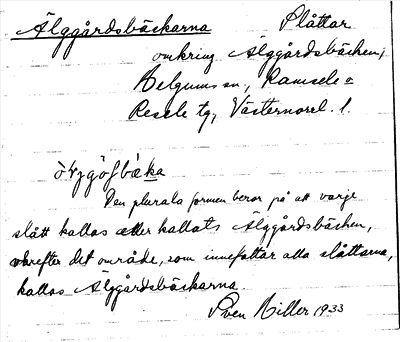 Älggårdsbäckarna Slåttar
omkring Älggårdsbäcken,
Helgums sn, Ramsele o
Resele tg, Västernorrl. l.
Den plurala formen beror på att varje
slått kallas eller kallats Älggårdsbäcken,
varefter det område, som innefattar alla slåttarna,
kallas Älggårdsbäckarna.
Sven Hiller 1933